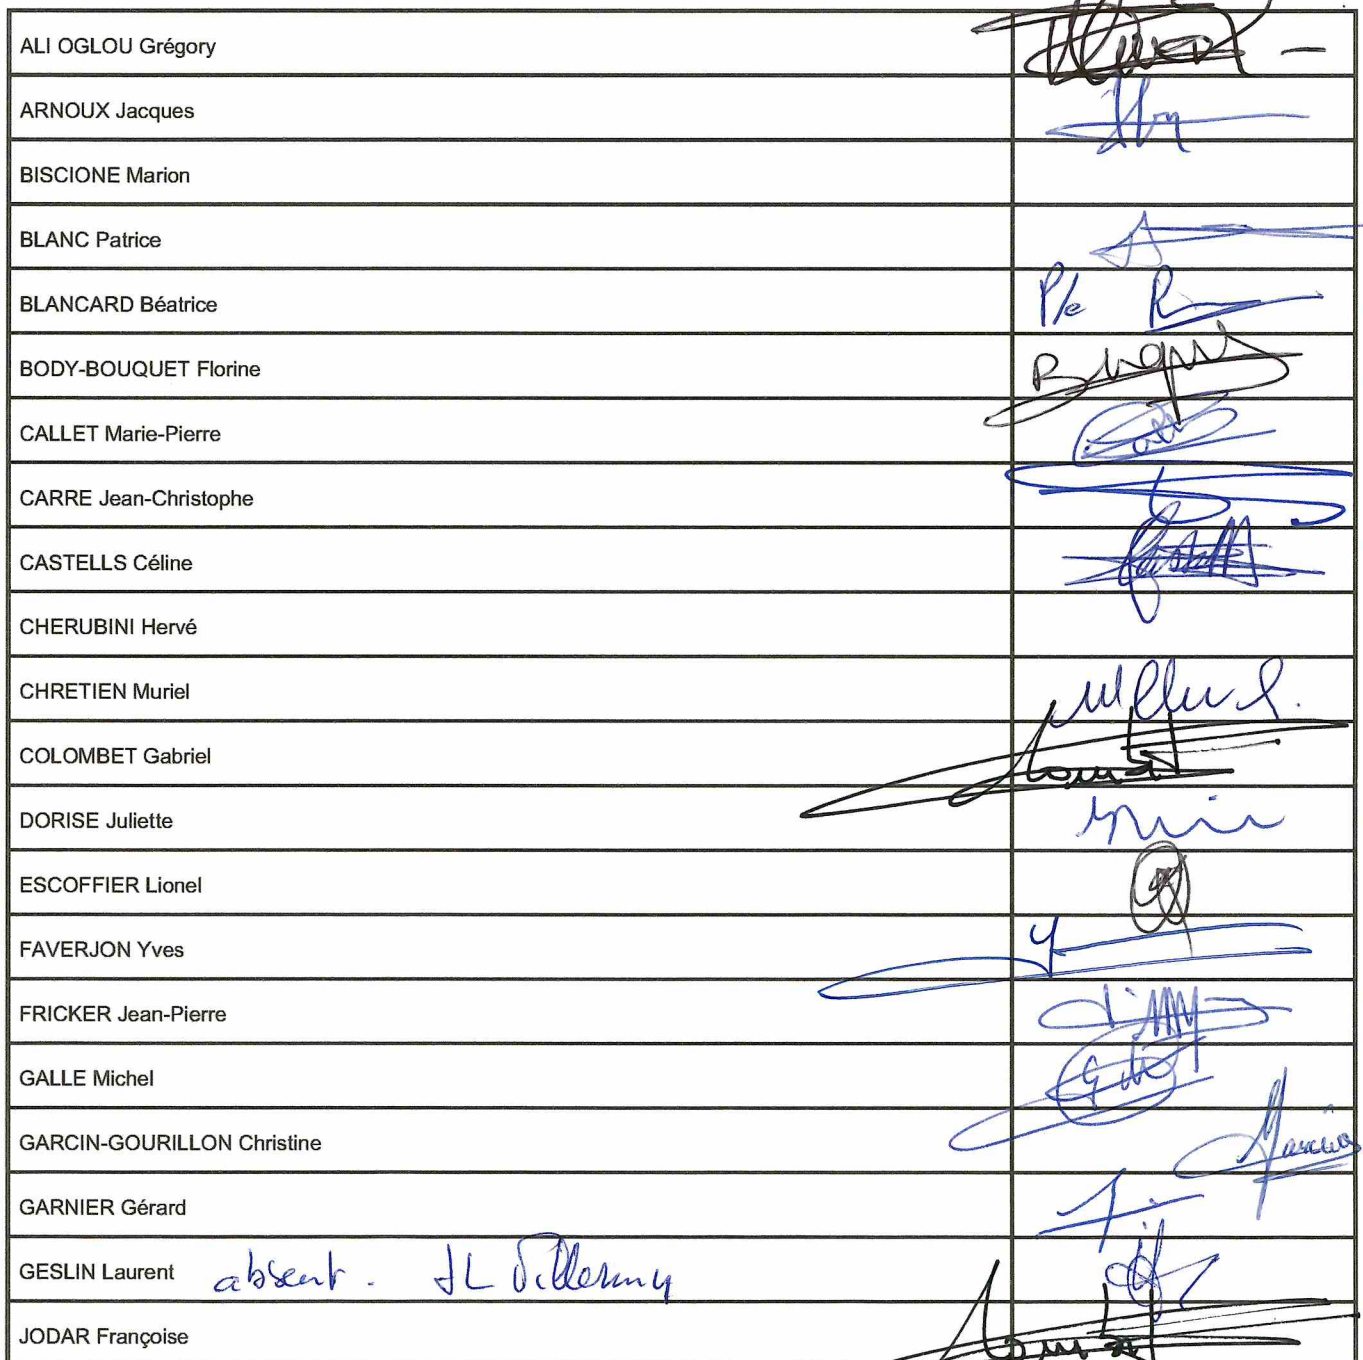 ALI OGLOU Grégory
ARNOUX Jacques
BISCIONE Marion
BLANC Patrice
BLANCARD Béatrice P/o
BODY-BOUQUET Florine
CALLET Marie-Pierre
CARRE Jean-Christophe
CASTELLS Céline
CHERUBINI Hervé
CHRETIEN Muriel
COLOMBET Gabriel
DORISE Juliette
ESCOFFIER Lionel
FAVERJON Yves
FRICKER Jean-Pierre
GALLE Michel
GARCIN-GOURILLON Christine
GARNIER Gérard
GESLIN Laurent absent. JL
JODAR Françoise